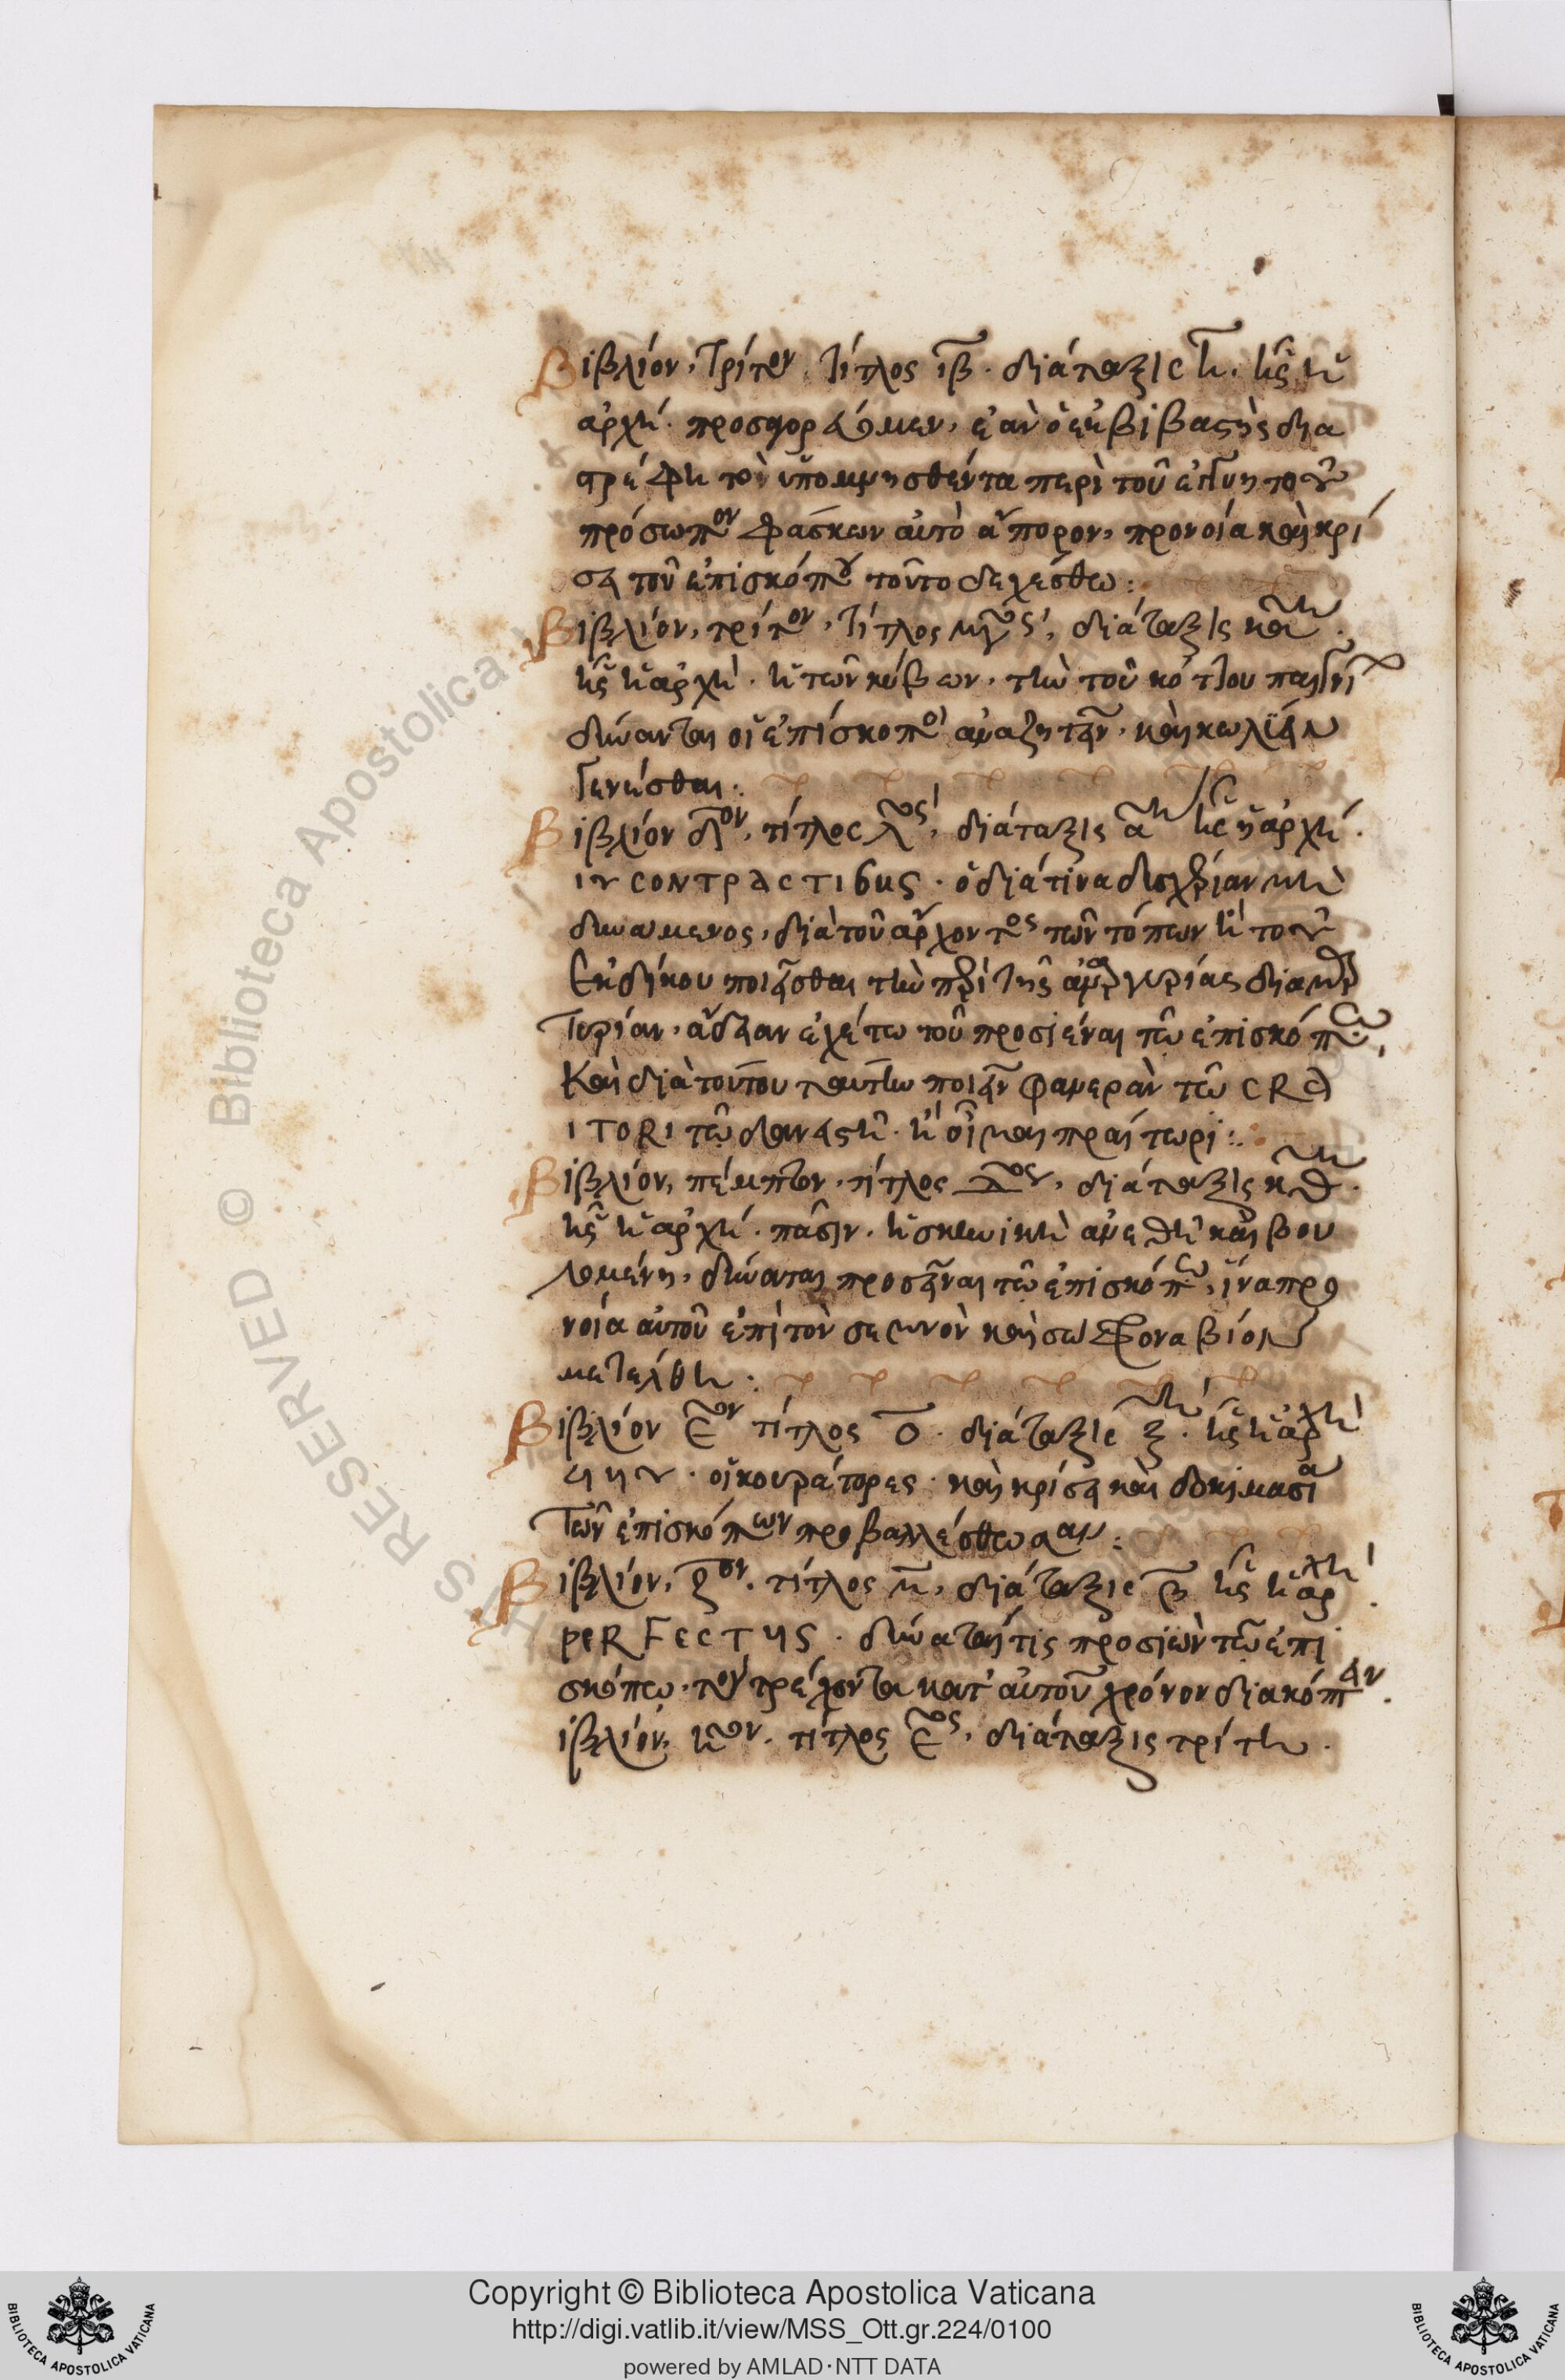 Βιβλίον τρίτον τίτλος ιβ· διάταξις η. ἧς ἡ
ἀρχή· προσφορ μεν, ἐὰν ὁ ἐκβιβαστὴς δια
στρέφη τὸν ὑπομνησθέντα περὶ τοῦ ἐγγυητοῦ
πρόσωπον φάσκων αὐτὸ ἄπορον, προνοία καὶ κρί
σει τοῦ ἐπισκόπου τοῦτο δεχέσθω:
Βιβλίον, τρίτον, τίτλος μγος, διάταξις
ἧς ἡ ἀρχή· ἡ τῶν κύβων· τὴν τοῦ κόττου
δύνανται οἱ ἐπίσκοποι ἀναζητεῖν· καὶ κωλύειν
γενέσθαι:
Βιβλίον δον, τίτλος λος, διάταξις ἧς ἡ ἀρχή.
ιν CONTRACTIbus· ὁ διά τινα δυσχέρειαν μὴ
δυνάμενος, διὰ τοῦ ἄρχοντος τῶν τόπων ἢ τοῦ
ἐκδίκου ποιεῖσθαι τὴν περὶ τῆς ἀναργυρίας διαμαρ
τυρίαν· ἄδειαν ἐχέτω τοῦ προσιέναι τῷ ἐπισκόπω,
καὶ διὰ τούτου ταύτην ποιεῖν φανερὰν τῷ CRED
ITORI τῷ δανειστῆ·
Βιβλίον, πέμπτον, τίτλος δος, διάταξις κθ.
ἧς ἡ ἀρχή· πᾶσιν· ἡ σκηνικὴ
λομένη, δύναται προσιέναι τῷ ἐπισκόπω, ἵνα προ
νοία αὐτοῦ ἐπὶ τὸν σεμνὸν καὶ σώφρονα βίον
μετέλθη:
Βιβλίον εον τίτλος ο· διάταξις ζ· ἧς ἡ ἀρχή
οἱ κουράτορες· καὶ κρίσει καὶ δοκιμασία
τῶν ἐπισκόπων προβαλλέσθωσαν:
Βιβλίον, ζον, τίτλος μ, διάταξις β ἧς ἡ ἀρχή.
PERFECTUS· δύναταί τις προσιὼν τῷ ἐπι
σκόπω· τὸν τρέχοντα κατ' αὐτοῦ χρόνον διακόπτειν.
ιβλίον, ηον· τίτλος εος, διάταξις τρίτη.
THIS RESERVED © Biblioteca Apostolica
Copyright © Biblioteca Apostolica Vaticana
http://digi.vatlib.it/view/MSS_Ott.gr.224/0100
powered by AMLAD·NTT DATA
BIBLIOTECA APOSTOLICA VATICANA
BIBLIOTECA APOSTOLICA VATICANA